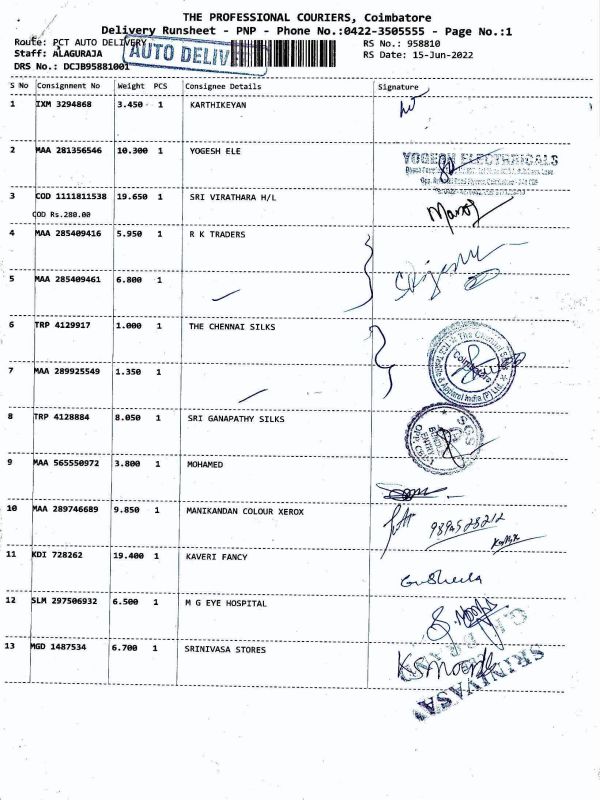 THE PROFESSIONAL COURIERS, Coimbatore
Delivery Runsheet - PNP - Phone No.:0422-3505555 - Page No.:1
Route: PCT AUTO DELIVERY
AUTO DELIV
RS No.: 958810
Staff: ALAGURAJA
RS Date: 15-Jun-2022
DRS No.: DCJB95881001
S No Consignment No Weight PCS Consignee Details Signature
1 IXM 3294868 3.450 1 KARTHIKEYAN
2 MAA 281356546 10.300 1 YOGESH ELE
YOGESH ELECTRICALS
3 COD 1111811538 19.650 1 SRI VIRATHARA H/L
COD Rs.280.00
Manoj
4 MAA 285409416 5.950 1 R K TRADERS
5 MAA 285409461 6.800 1
6 TRP 4129917 1.000 1 THE CHENNAI SILKS
7 MAA 289925549 1.350 1
8 TRP 4128884 8.050 1 SRI GANAPATHY SILKS
SGS
9 MAA 565550972 3.800 1 MOHAMED
10 MAA 289746689 9.850 1 MANIKANDAN COLOUR XEROX
11 KDI 728262 19.400 1 KAVERI FANCY
12 SLM 297506932 6.500 1 M G EYE HOSPITAL
13 MGD 1487534 6.700 1 SRINIVASA STORES
SRINIVASA